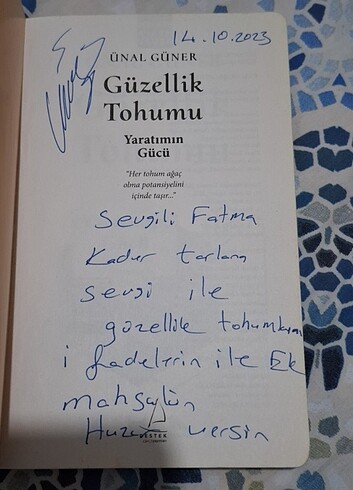 14.10.2023
ÜNAL GÜNER
Güzellik
Tohumu
Yaratımın
Gücü
"Her tohum ağaç
olma potansiyelini
içinde taşır..."
Sevgili Fatma
Kader tarlana
sevgi ile
güzellik tohumlarını
ifadelerin ile Ek
mahsulün
Huzur versin
DESTEK